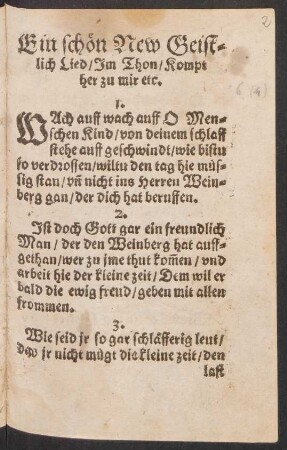 2
Ein schön New Geist-
lich Lied/Im Thon/Kompt
her zu mir etc.
6 (4)
1.
WAch auff wach auff O Men-
schen Kind/von deinem schlaff
stehe auff geschwindt/wie bistu
so verdrossen/wiltu den tag hie müs-
sig stan/vñ nicht ins Herren Wein-
berg gan/der dich hat beruffen.
2.
Ist doch Gott gar ein freundlich
Man/der den Weinberg hat auff-
gethan/wer zu jme thut kom̃en/vnd
arbeit hie der kleine zeit/Dem wil er
bald die ewig freud/geben mit allen
frommen.
3.
Wie seid jr so gar schläfferig leut/
Das jr nicht mügt die kleine zeit/den
last